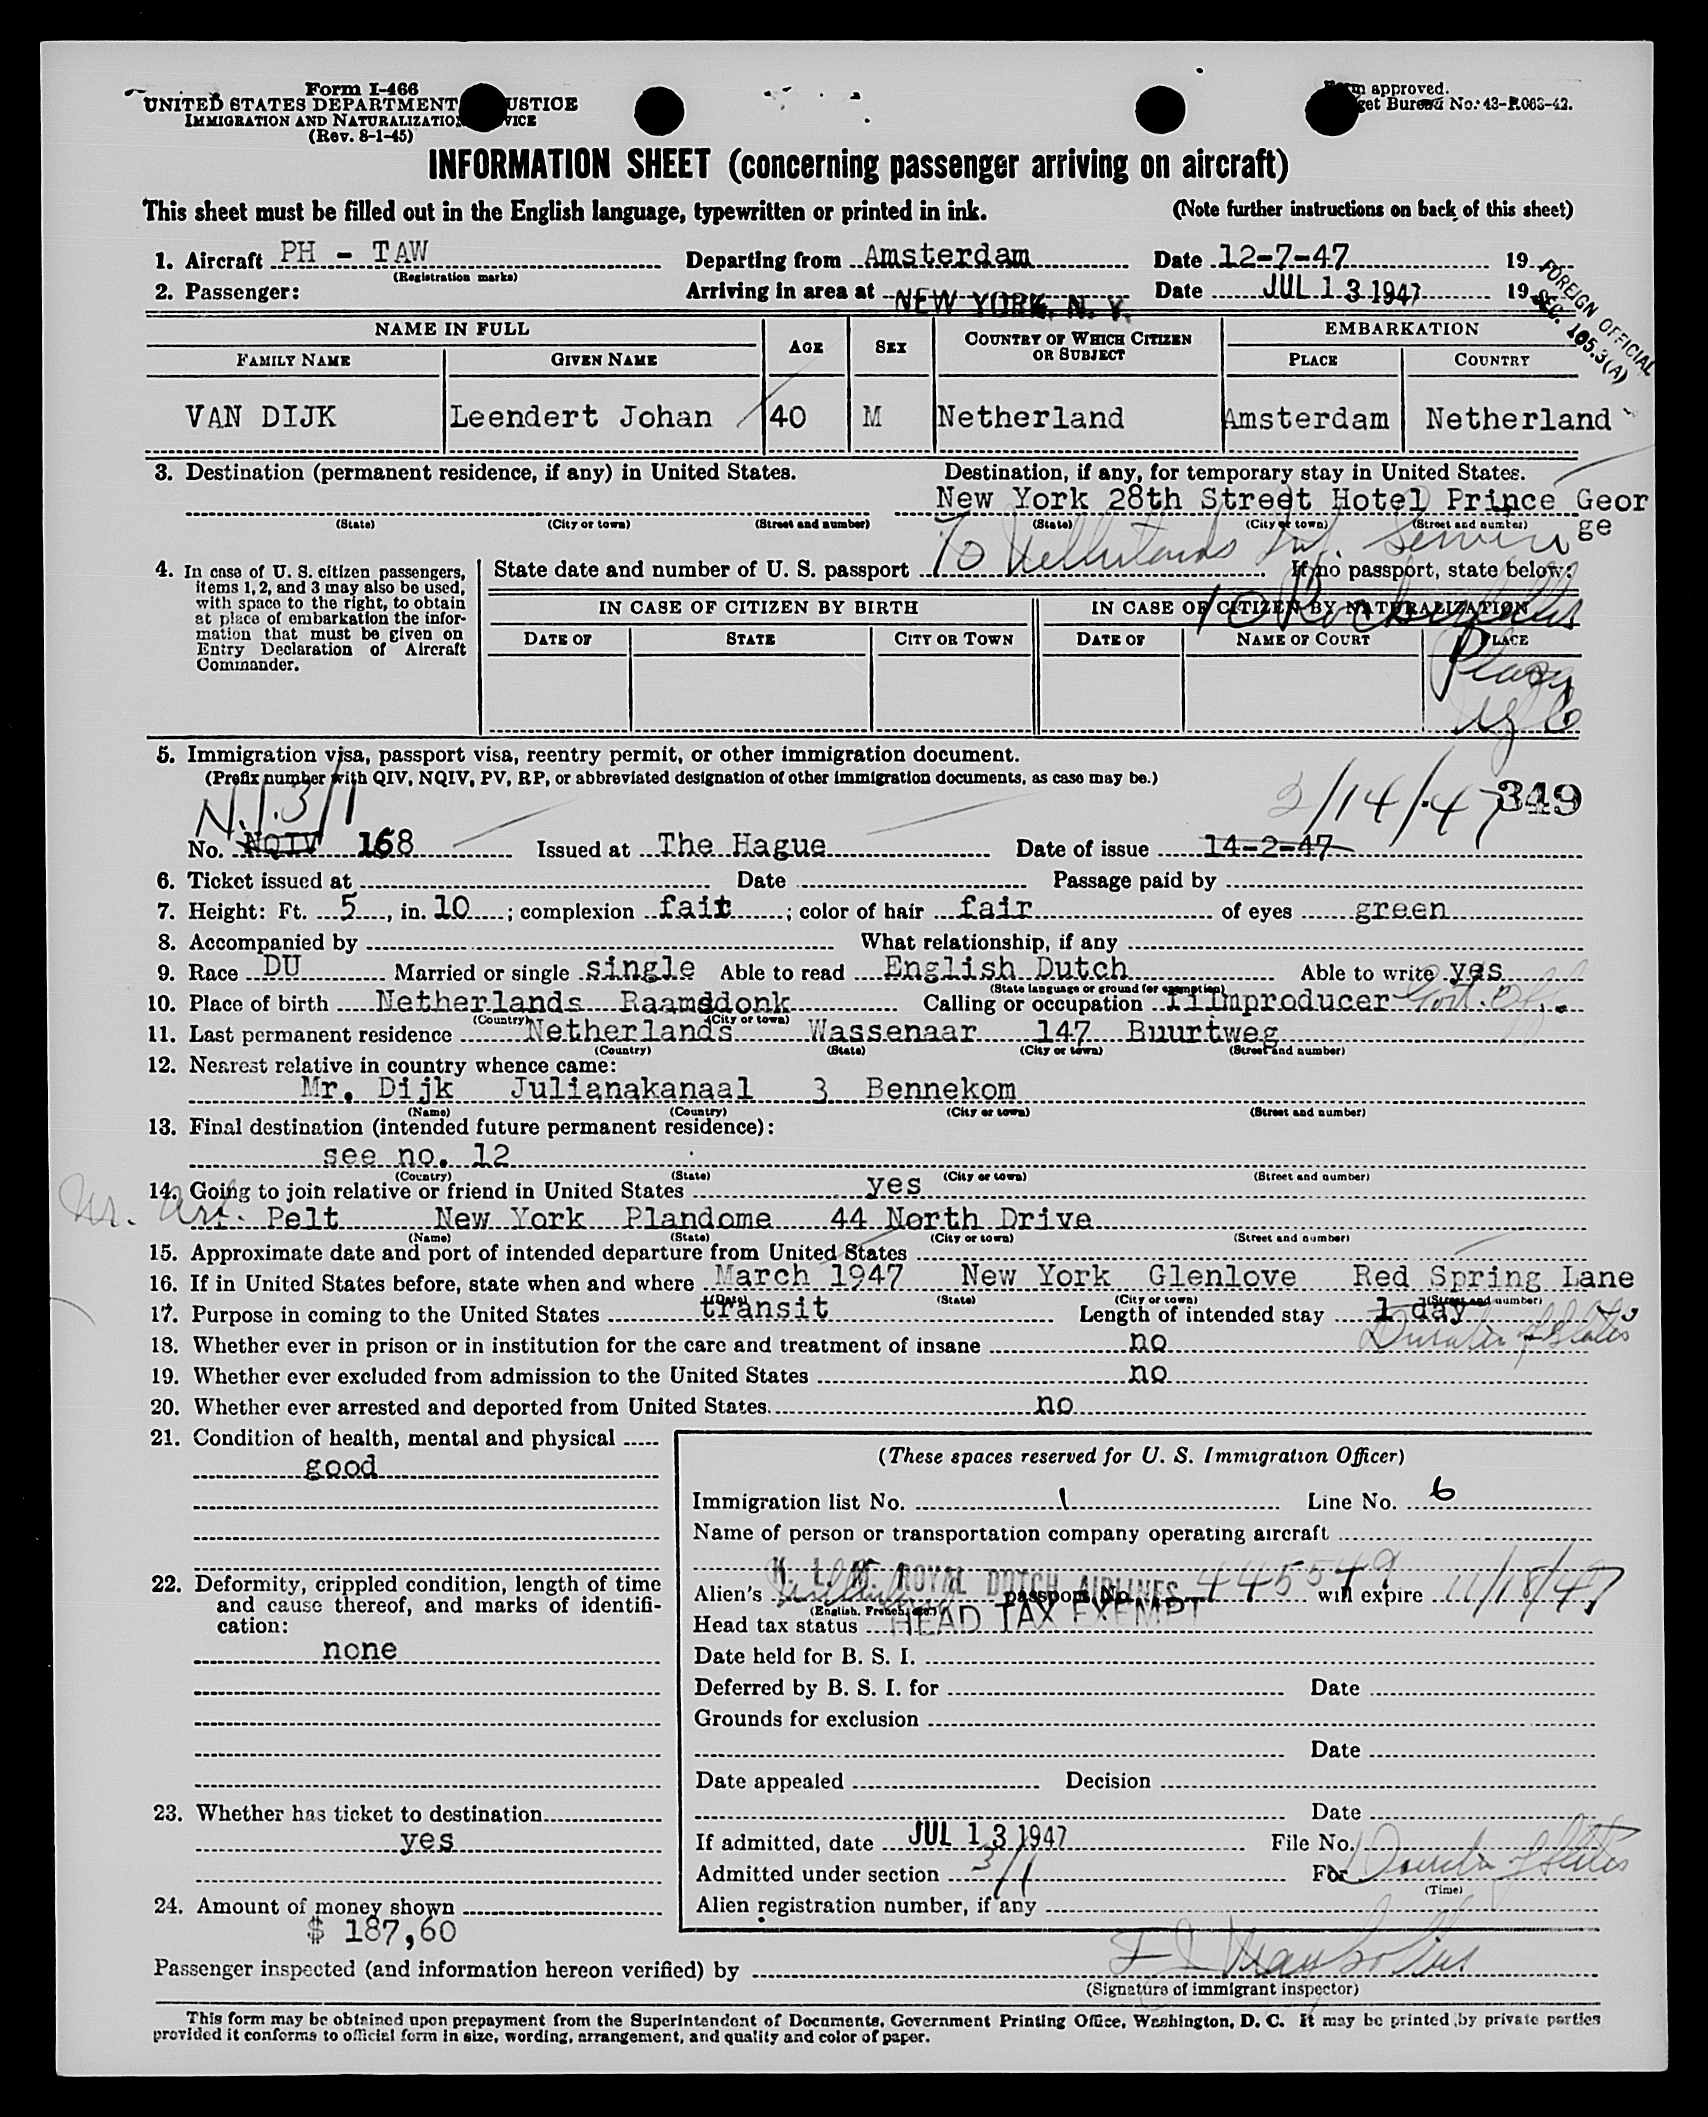 Form I-466
UNITED STATES DEPARTMENT USTICE
IMMIGRATION AND NATURALIZATION VICE
(Rev. 8-1-45)
approved.
get Bureau No. 43-R063-42.
INFORMATION SHEET (concerning passenger arriving on aircraft)
This sheet must be filled out in the English language, typewritten or printed in ink. (Note further instructions on back of this sheet)
1. Aircraft PH - TAW Departing from Amsterdam Date 12-7-47 19
(Registration marks)
2. Passenger: Arriving in area at NEW YORK, N. Y. Date JUL 13 1947 19
FOREIGN OFFICIAL
SEC. 105.3(A)
NAME IN FULL AGE SEX COUNTRY OF WHICH CITIZEN OR SUBJECT EMBARKATION
FAMILY NAME GIVEN NAME PLACE COUNTRY
VAN DIJK Leendert Johan 40 M Netherland Amsterdam Netherland
3. Destination (permanent residence, if any) in United States. Destination, if any, for temporary stay in United States.
New York 28th Street Hotel Prince Geor
ge
(State) (City or town) (Street and number) (State) (City or town) (Street and number)
To Netherlands Inf. Service
4. In case of U. S. citizen passengers, items 1, 2, and 3 may also be used, with space to the right, to obtain at place of embarkation the information that must be given on Entry Declaration of Aircraft Commander.
State date and number of U. S. passport If no passport, state below:
10 Rockefeller
Plaza
NYC
IN CASE OF CITIZEN BY BIRTH IN CASE OF CITIZEN BY NATURALIZATION
DATE OF STATE CITY OR TOWN DATE OF NAME OF COURT PLACE
5. Immigration visa, passport visa, reentry permit, or other immigration document.
(Prefix number with QIV, NQIV, PV, RP, or abbreviated designation of other immigration documents, as case may be.)
N.I. 3/1 2/14/47 349
No. NQIV 168 Issued at The Hague Date of issue 14-2-47
6. Ticket issued at Date Passage paid by
7. Height: Ft. 5, in. 10; complexion fair; color of hair fair of eyes green
8. Accompanied by What relationship, if any
9. Race DU Married or single single Able to read English Dutch Able to write yes
(State language or ground for exemption)
10. Place of birth Netherlands Raamsdonk Calling or occupation filmproducer Govt. Off.
(Country) (City or town)
11. Last permanent residence Netherlands Wassenaar 147 Buurtweg
(Country) (State) (City or town) (Street and number)
12. Nearest relative in country whence came:
Mr. Dijk Julianakanaal 3 Bennekom
(Name) (Country) (City or town) (Street and number)
13. Final destination (intended future permanent residence):
see no. 12
(Country) (State) (City or town) (Street and number)
14. Going to join relative or friend in United States yes
Pelt New York Plandome 44 North Drive
(Name) (State) (City or town) (Street and number)
15. Approximate date and port of intended departure from United States
16. If in United States before, state when and where March 1947 New York Glenlove Red Spring Lane
(Date) (State) (City or town) (Street and number)
17. Purpose in coming to the United States transit Length of intended stay 1 day
Duration of Status
18. Whether ever in prison or in institution for the care and treatment of insane no
19. Whether ever excluded from admission to the United States no
20. Whether ever arrested and deported from United States no
21. Condition of health, mental and physical
good
22. Deformity, crippled condition, length of time and cause thereof, and marks of identification:
none
23. Whether has ticket to destination
yes
24. Amount of money shown
$ 187,60
(These spaces reserved for U. S. Immigration Officer)
Immigration list No. 1 Line No. 6
Name of person or transportation company operating aircraft
K. L. M. ROYAL DUTCH AIRLINES
Alien's passport No. 445549 will expire 11/18/47
(English, French, etc.)
Head tax status HEAD TAX EXEMPT
Date held for B. S. I.
Deferred by B. S. I. for Date
Grounds for exclusion
Date
Date appealed Decision
Date
If admitted, date JUL 13 1947 File No.
Admitted under section 3/1 For Duration of Status
(Time)
Alien registration number, if any
Passenger inspected (and information hereon verified) by
(Signature of immigrant inspector)
This form may be obtained upon prepayment from the Superintendent of Documents, Government Printing Office, Washington, D. C. It may be printed by private parties
provided it conforms to official form in size, wording, arrangement, and quality and color of paper.